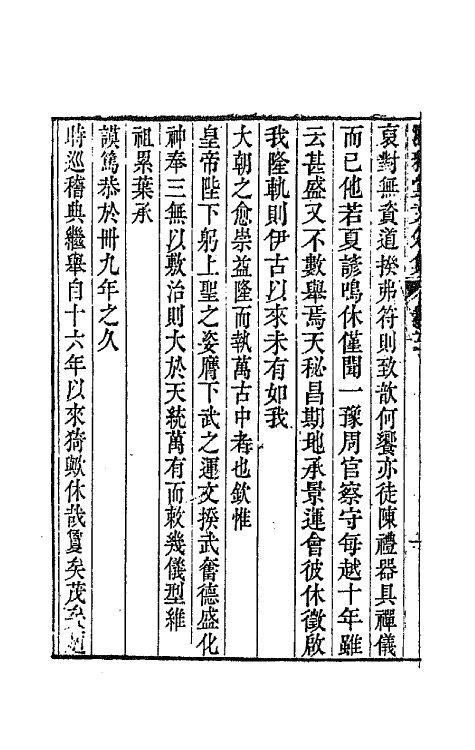 裒對無資道揆弗符則致歆何饗亦徒陳禮器具禪儀
而已他若夏諺鳴休僅聞一豫周官察守每越十年雖
云甚盛又不數舉焉天秘昌期地承景運會彼休徵啟
我隆軌則伊古以來未有如我
大朝之愈崇益隆而執萬古中者也欽惟
皇帝陛下躬上聖之姿膺下武之運文揆武奮德盛化
神奉三無以敷治則大於天統萬有而敕幾儀型維
祖累葉承
謨篤恭於卌九年之久
時巡稽典繼舉自十六年以來猗歟休哉敻矣茂矣